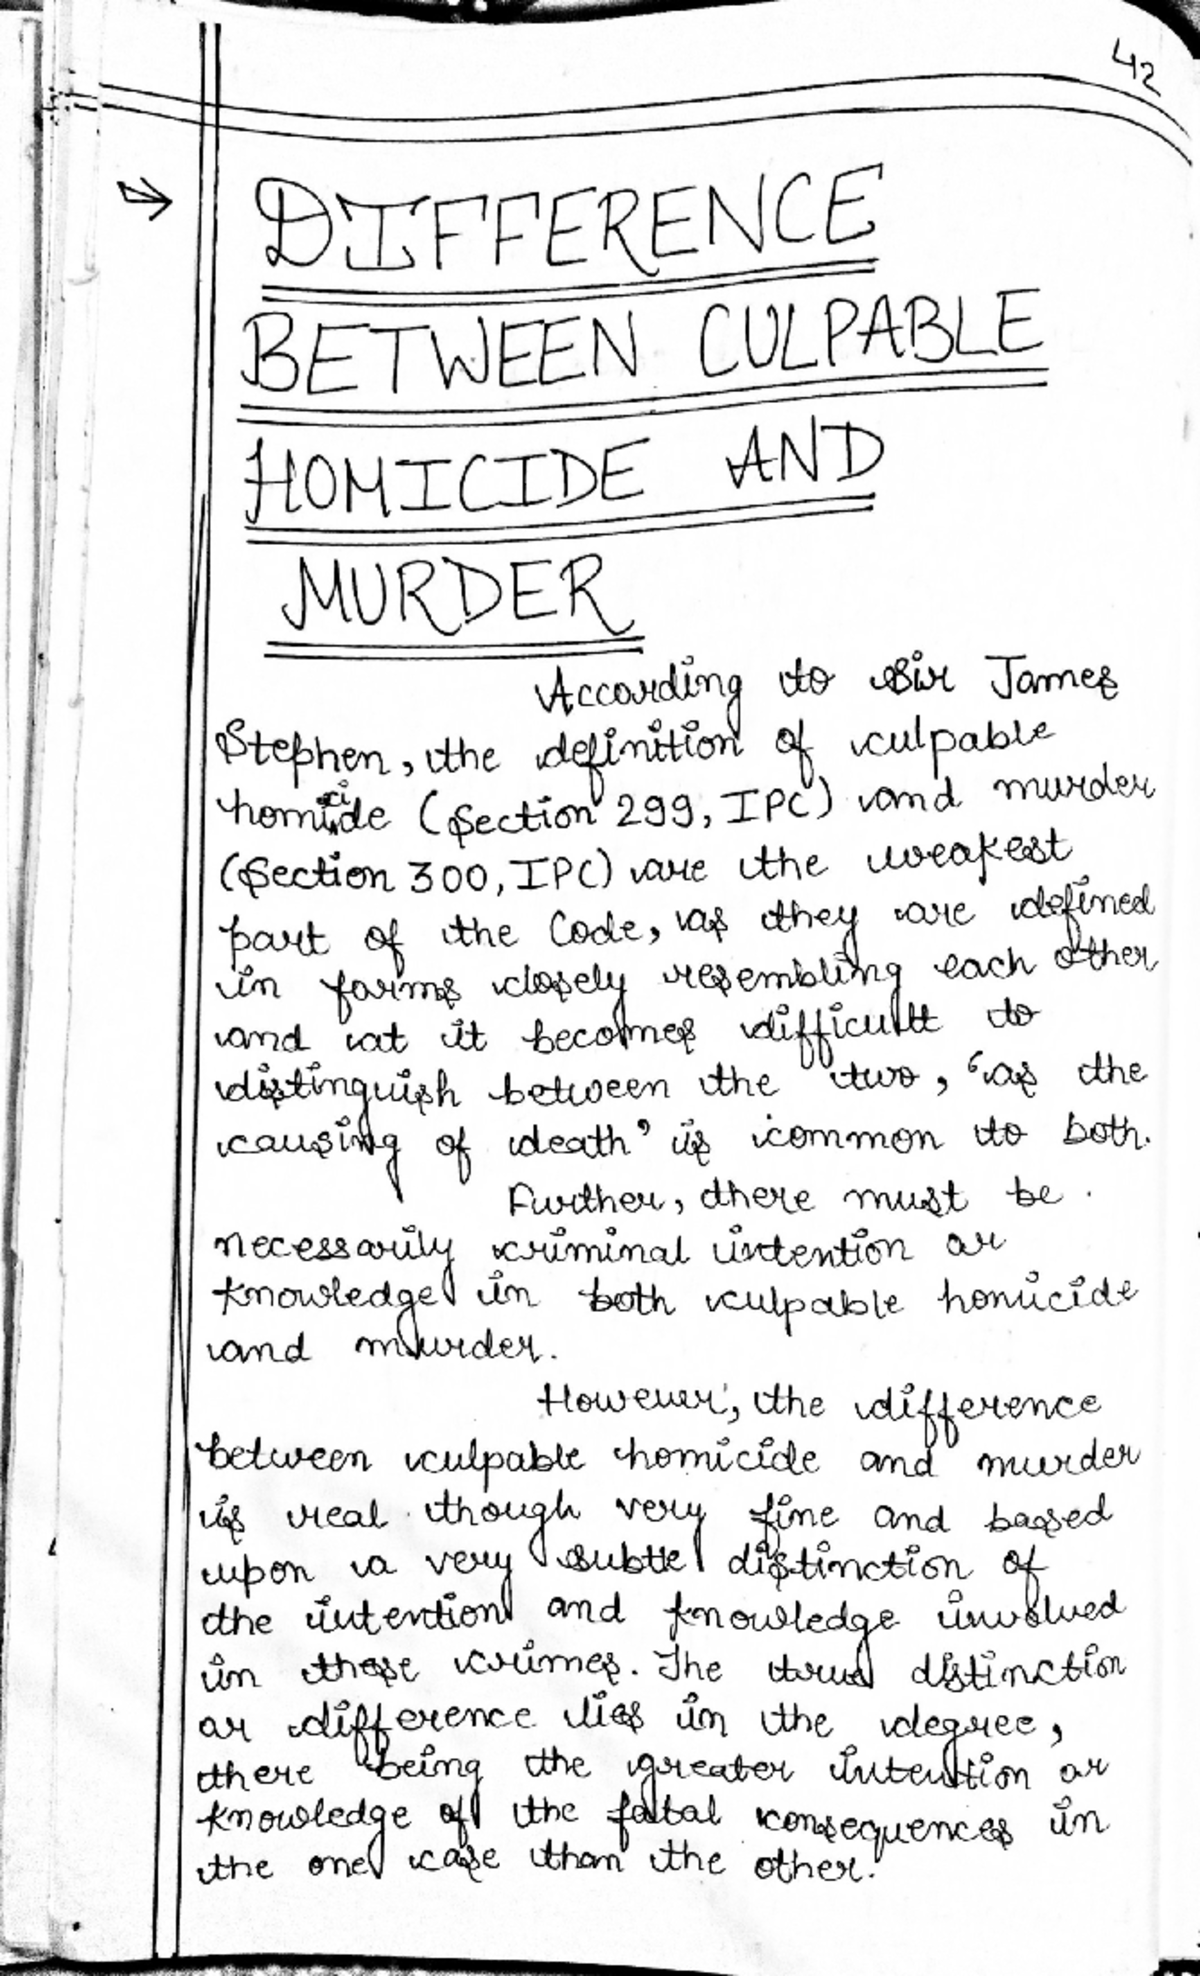 42
DIFFERENCE
BETWEEN CULPABLE
HOMICIDE AND
MURDER
According to Sir James
Stephen, the definition of culpable
homicide (Section 299, IPC) and murder
(Section 300, IPC) are the weakest
part of the Code, as they are defined
in forms closely resembling each other
and at it becomes difficult to
distinguish between the two, 'as the
causing of death' is common to both.
Further, there must be
necessarily criminal intention or
knowledge in both culpable homicide
and murder.
However, the difference
between culpable homicide and murder
is real though very fine and based
upon a very subtle distinction of
the intention and knowledge involved
in these crimes. The true distinction
or difference lies in the degree,
there being the greater intention or
knowledge of the fatal consequences in
the one case than the other.